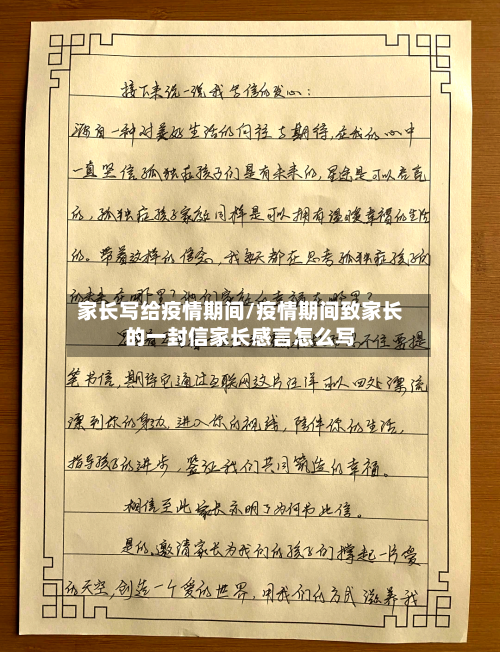 接下来说一说我写信的发心：
源自一种对美好生活的向往与期待，在我的心中
一直坚信孤独症孩子们是有未来的，星途是可以点亮
的，孤独症孩子家庭同样是可以拥有温暖幸福的生活
的。带着这样的信念，我每天都在思考孤独症孩子们
的未来在哪里？他们
家长写给疫情期间/疫情期间致家长
的一封信家长感言怎么写
不住要提
笔书信，期待它通过互联网这片汪洋可以四处漂流
漂到你的身边，进入你的视线，陪伴你的生活，
指导孩子的进步，签证我们共同筑造的幸福。
相信至此家长亦明了为何书此信。
是的，邀请家长为我们的孩子们撑起一片爱
的天空，创造一个爱的世界，用我们的方式滋养我